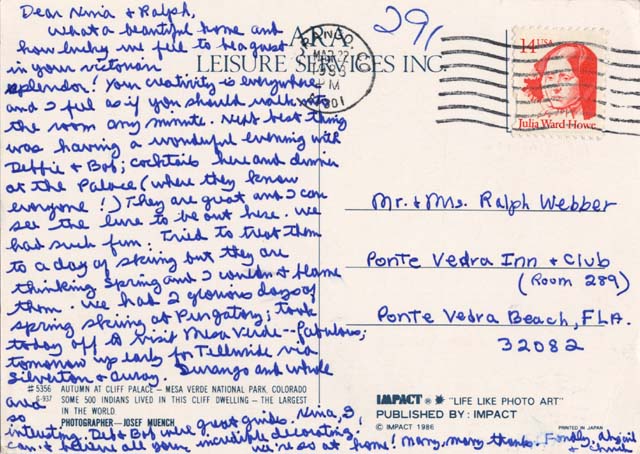 Dear Nina & Ralph,
What a beautiful home and
how lucky we feel to be a guest
in your victorian
splendor! Your creativity is everywhere
and I feel as if you should walk into
the room any minute. Next best thing
was having a wonderful evening with
Debbie & Bob; cocktails here and dinner
at the Palace (where they know
everyone!) They are great and I can
see the lure to be out here. We
had such fun. Tried to treat them
to a day of skiing but they are
thinking spring and I couldn't blame
them. We had 2 glorious days of
spring skiing at Purgatory; took
today off to visit Mesa Verde -- fabulous;
tomorrow up early for Telluride via
Silverton & Ouray. Durango and whole
area
so
interesting. Deb & Bob were great guides. Nina, I
can't believe all your incredible decorating.
We're so at home! Many, many thanks. Fondly, Abigail
& Chuck
ARA
LEISURE SERVICES INC.
291
DURANGO
MAR 22
PM
1993
14 USA
Julia Ward Howe
Mr. & Mrs. Ralph Webber
Ponte Vedra Inn & Club
(Room 289)
Ponte Vedra Beach, FLA.
32082
#5356 AUTUMN AT CLIFF PALACE – MESA VERDE NATIONAL PARK, COLORADO
G-937 SOME 500 INDIANS LIVED IN THIS CLIFF DWELLING – THE LARGEST
IN THE WORLD.
PHOTOGRAPHER–JOSEF MUENCH
IMPACT ® "LIFE LIKE PHOTO ART"
PUBLISHED BY: IMPACT
© IMPACT 1986
PRINTED IN JAPAN